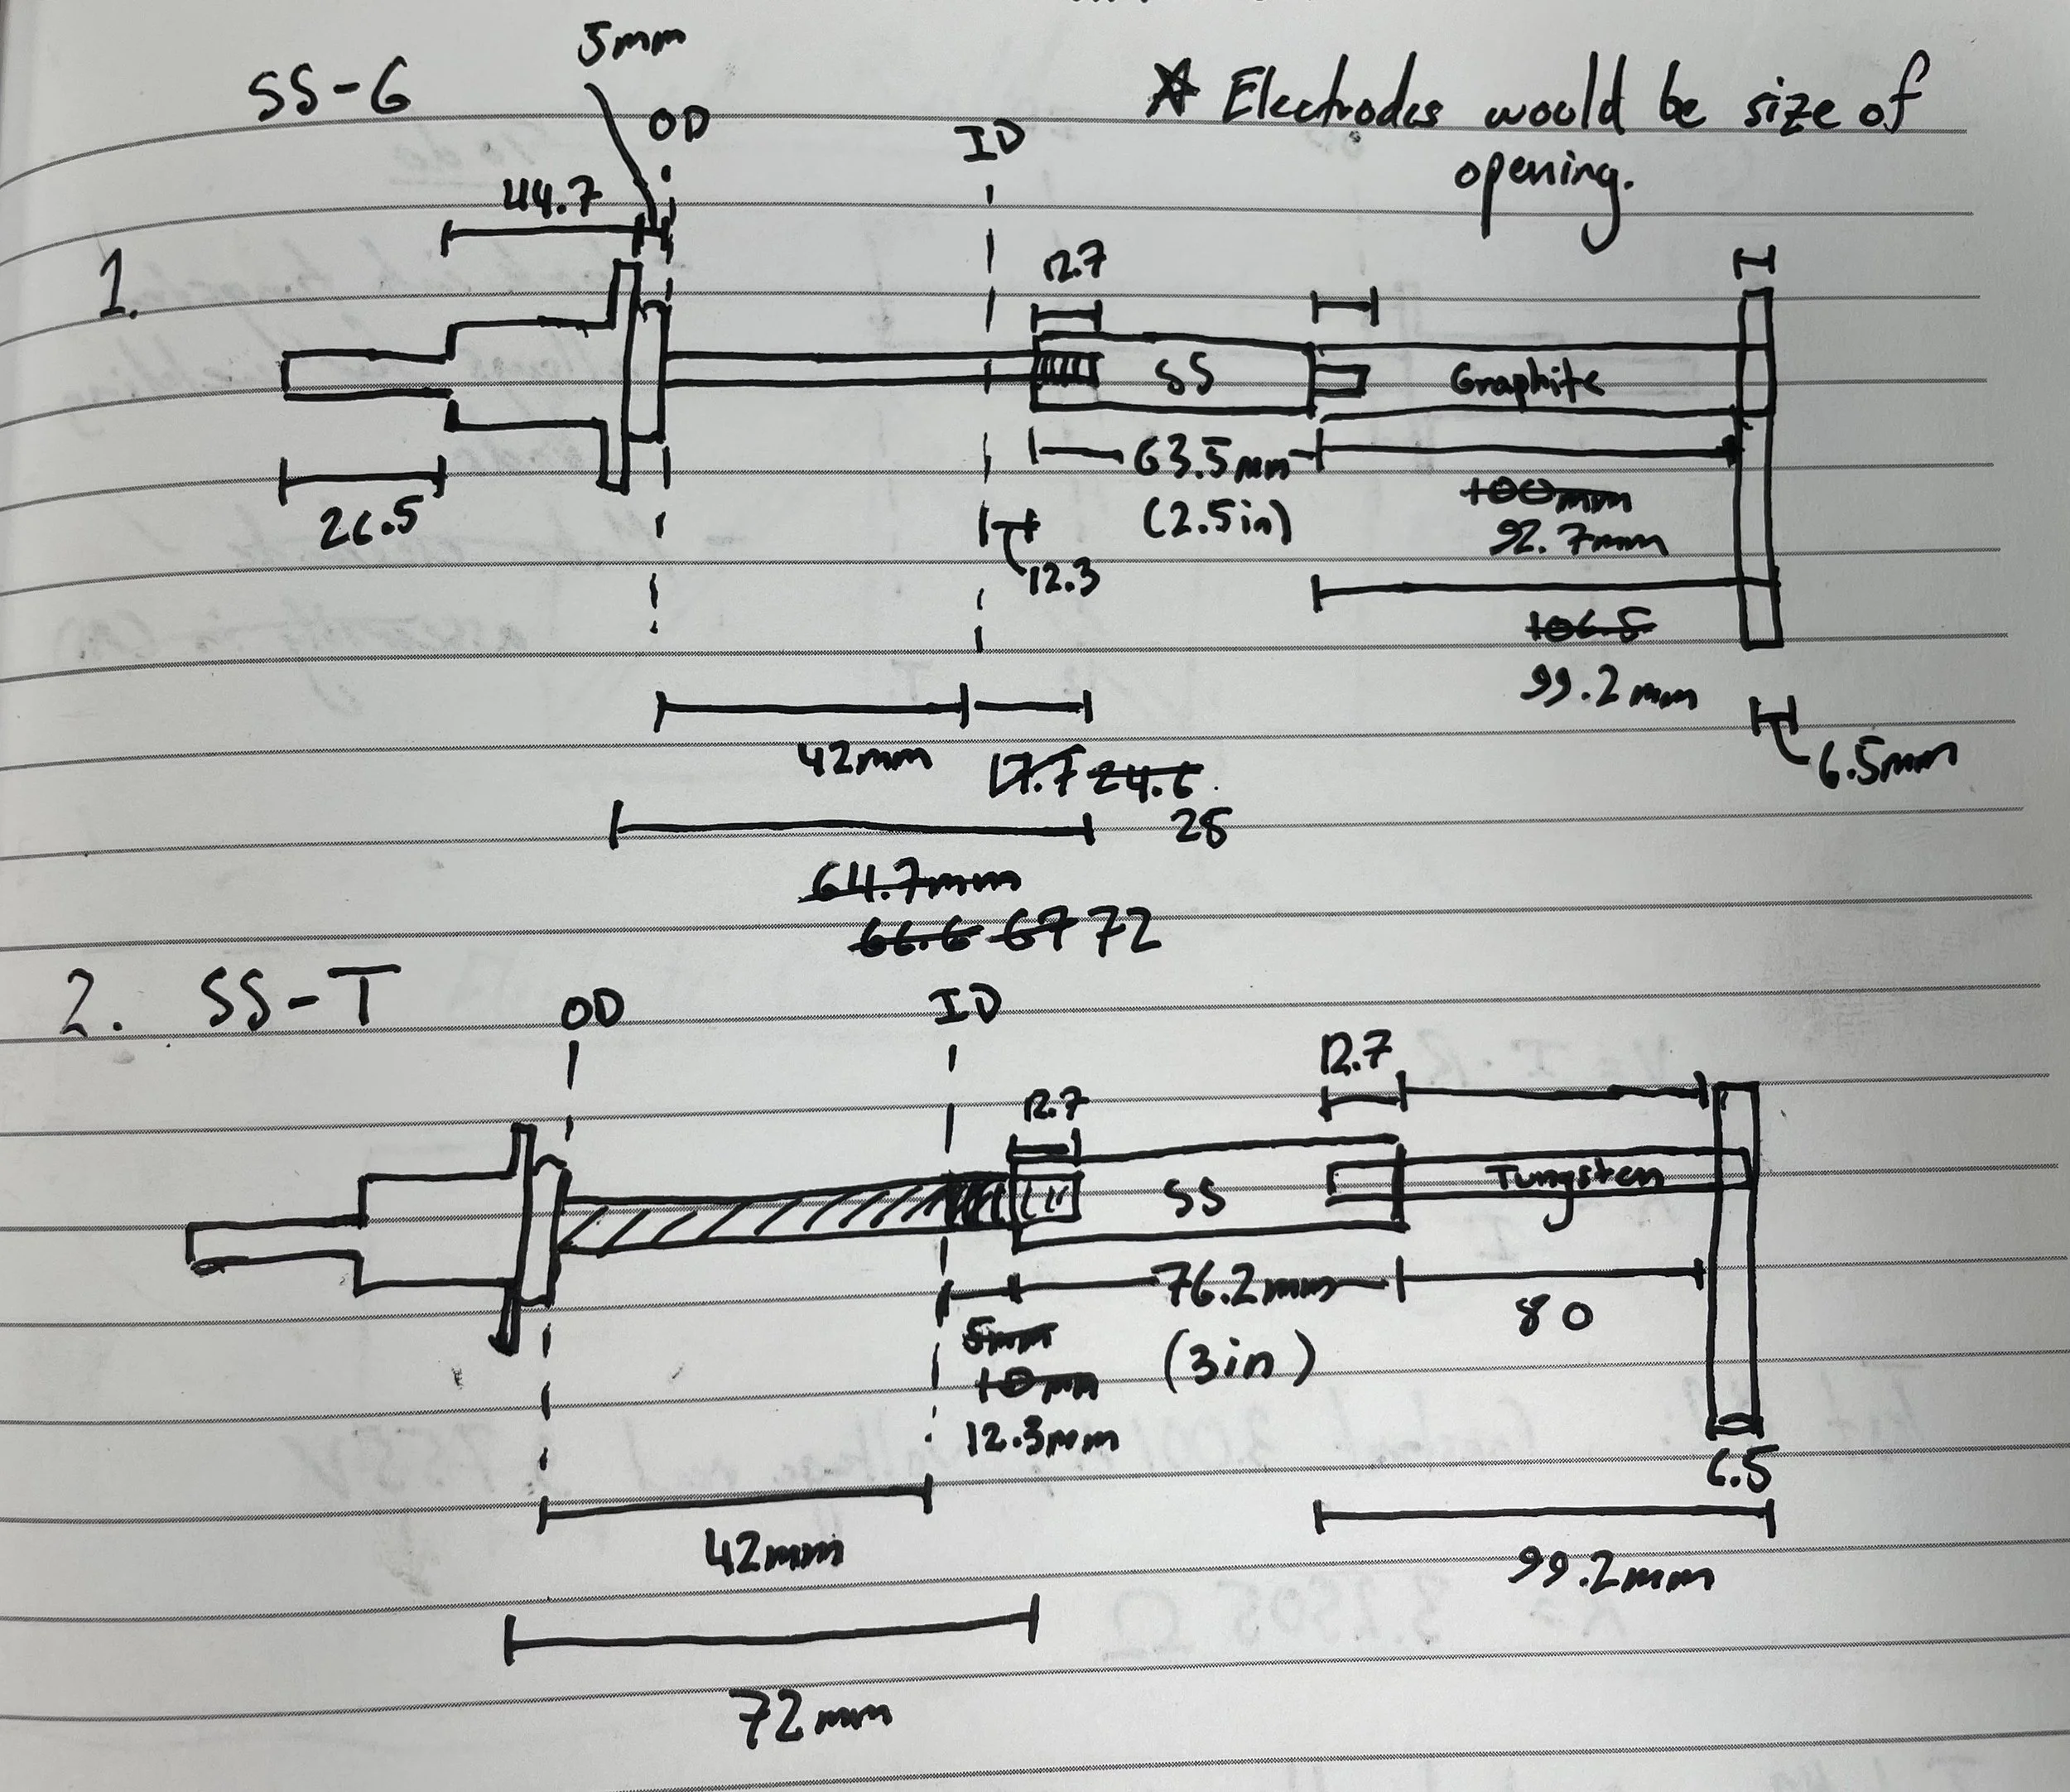 5mm
SS-G
OD
ID
★ Electrodes would be size of
opening.
44.7
1.
12.7
SS
Graphite
26.5
63.5mm
(2.5in)
100mm
92.7mm
12.3
106.5
99.2mm
42mm
17.7 24.6
28
6.5mm
64.7mm
66.6 67 72
2. SS-T
OD
ID
12.7
12.7
SS
Tungsten
76.2mm
(3in)
80
5mm
10mm
12.3mm
6.5
42mm
99.2mm
72mm